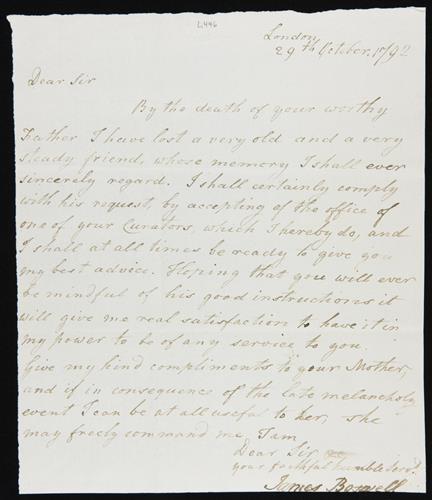 L446
London
29th October, 1792
Dear Sir
By the death of your worthy
Father I have lost a very old and a very
steady friend, whose memory I shall ever
sincerely regard. I shall certainly comply
with his request, by accepting of the office of
one of your Curators, which I hereby do, and
I shall at all times be ready to give you
my best advice. Hoping that you will ever
be mindful of his good instructions it
will give me real satisfaction to have it in
my power to be of any service to you.
Give my kind compliments to your Mother,
and if in consequence of the late melancholy
event I can be at all useful to her, she
may freely command me. I am
Dear Sir
your faithful humble Servt.
James Boswell